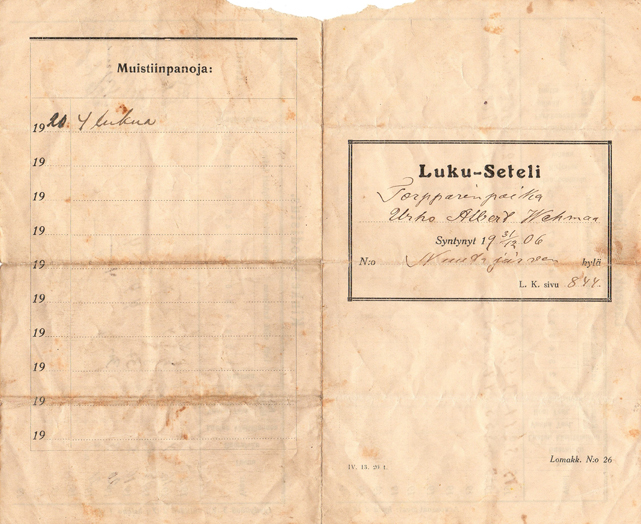 Muistiinpanoja:
1920. 4 lukua
19
19
19
19
19
19
19
19
19
Luku-Seteli
Torpparinpoika
Urho Albert Wehmaa
Syntynyt 19 31/12 06
N:o Nuutajärven kylä
L. K. sivu 844.
Lomakk. N:o 26
IV, 13. 20 t.